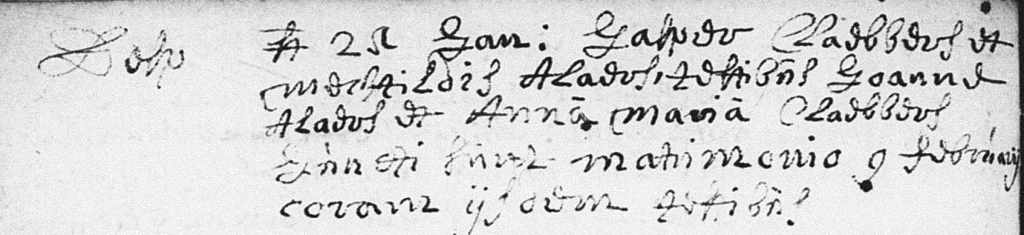 Desp 25 Jan: Jasper Claebbers et
mechtildis Aladers, testibus Joanne
Aladers et Annā mariā Claebbers
Juncti sunt matrimonio 9 februarij
coram ijsdem testibus